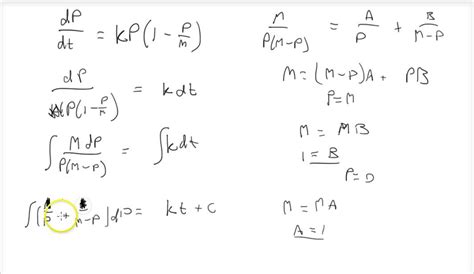 dP/dt = kP(1 - P/M)
dP/P(1 - P/M) = k dt
∫ M dP/P(M-P) = ∫ k dt
∫ ( /P + /M-P ) dP = kt + C
M/P(M-P) = A/P + B/M-P
M = (M-P)A + PB
P = M
M = MB
1 = B
P = 0
M = MA
A = 1